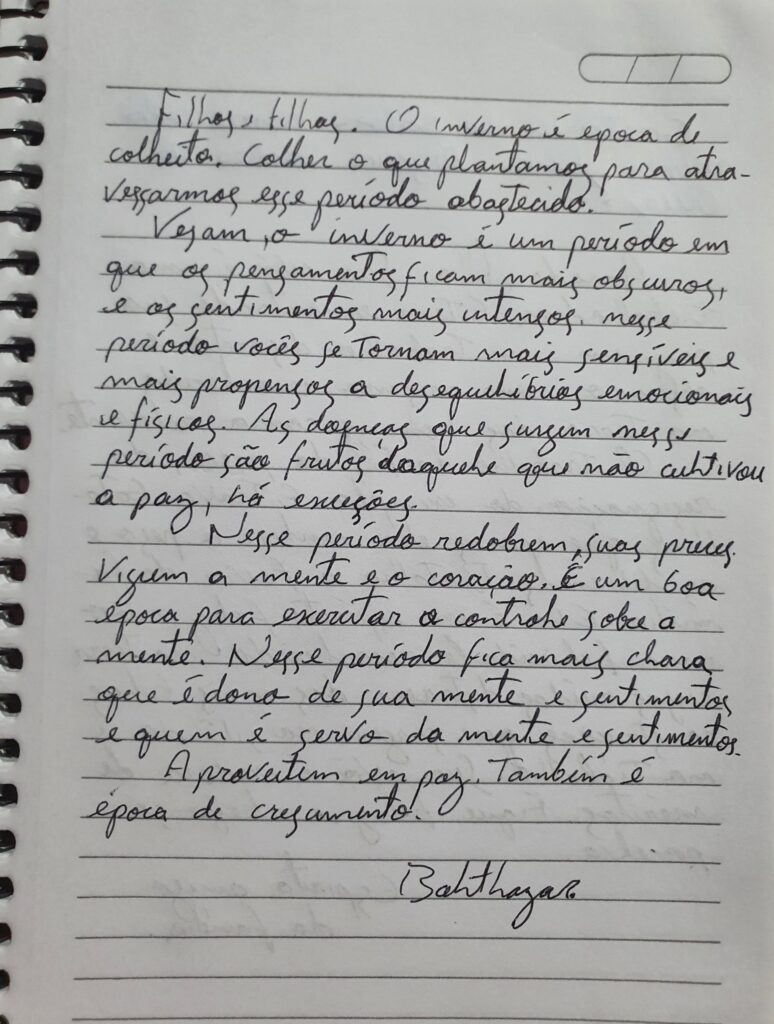 Filhos e filhas. O inverno é época de
colheita. Colher o que plantamos para atra-
vessarmos esse período abastecido.
Vejam, o inverno é um período em
que os pensamentos ficam mais obscuros,
e os sentimentos mais intensos. nesse
período vocês se tornam mais sensíveis e
mais propensos a desequilíbrios emocionais
e físicos. As doenças que surgem nesse
período são frutos daquele que não cultivou
a paz, há exceções.
Nesse período redobrem, suas preces.
Vigiem a mente e o coração. É um boa
época para exercitar o controle sobre a
mente. Nesse período fica mais claro
que é dono de sua mente e sentimentos
e quem é servo da mente e sentimentos.
Aproveitem em paz. Também é
época de crescimento.
Balthazar